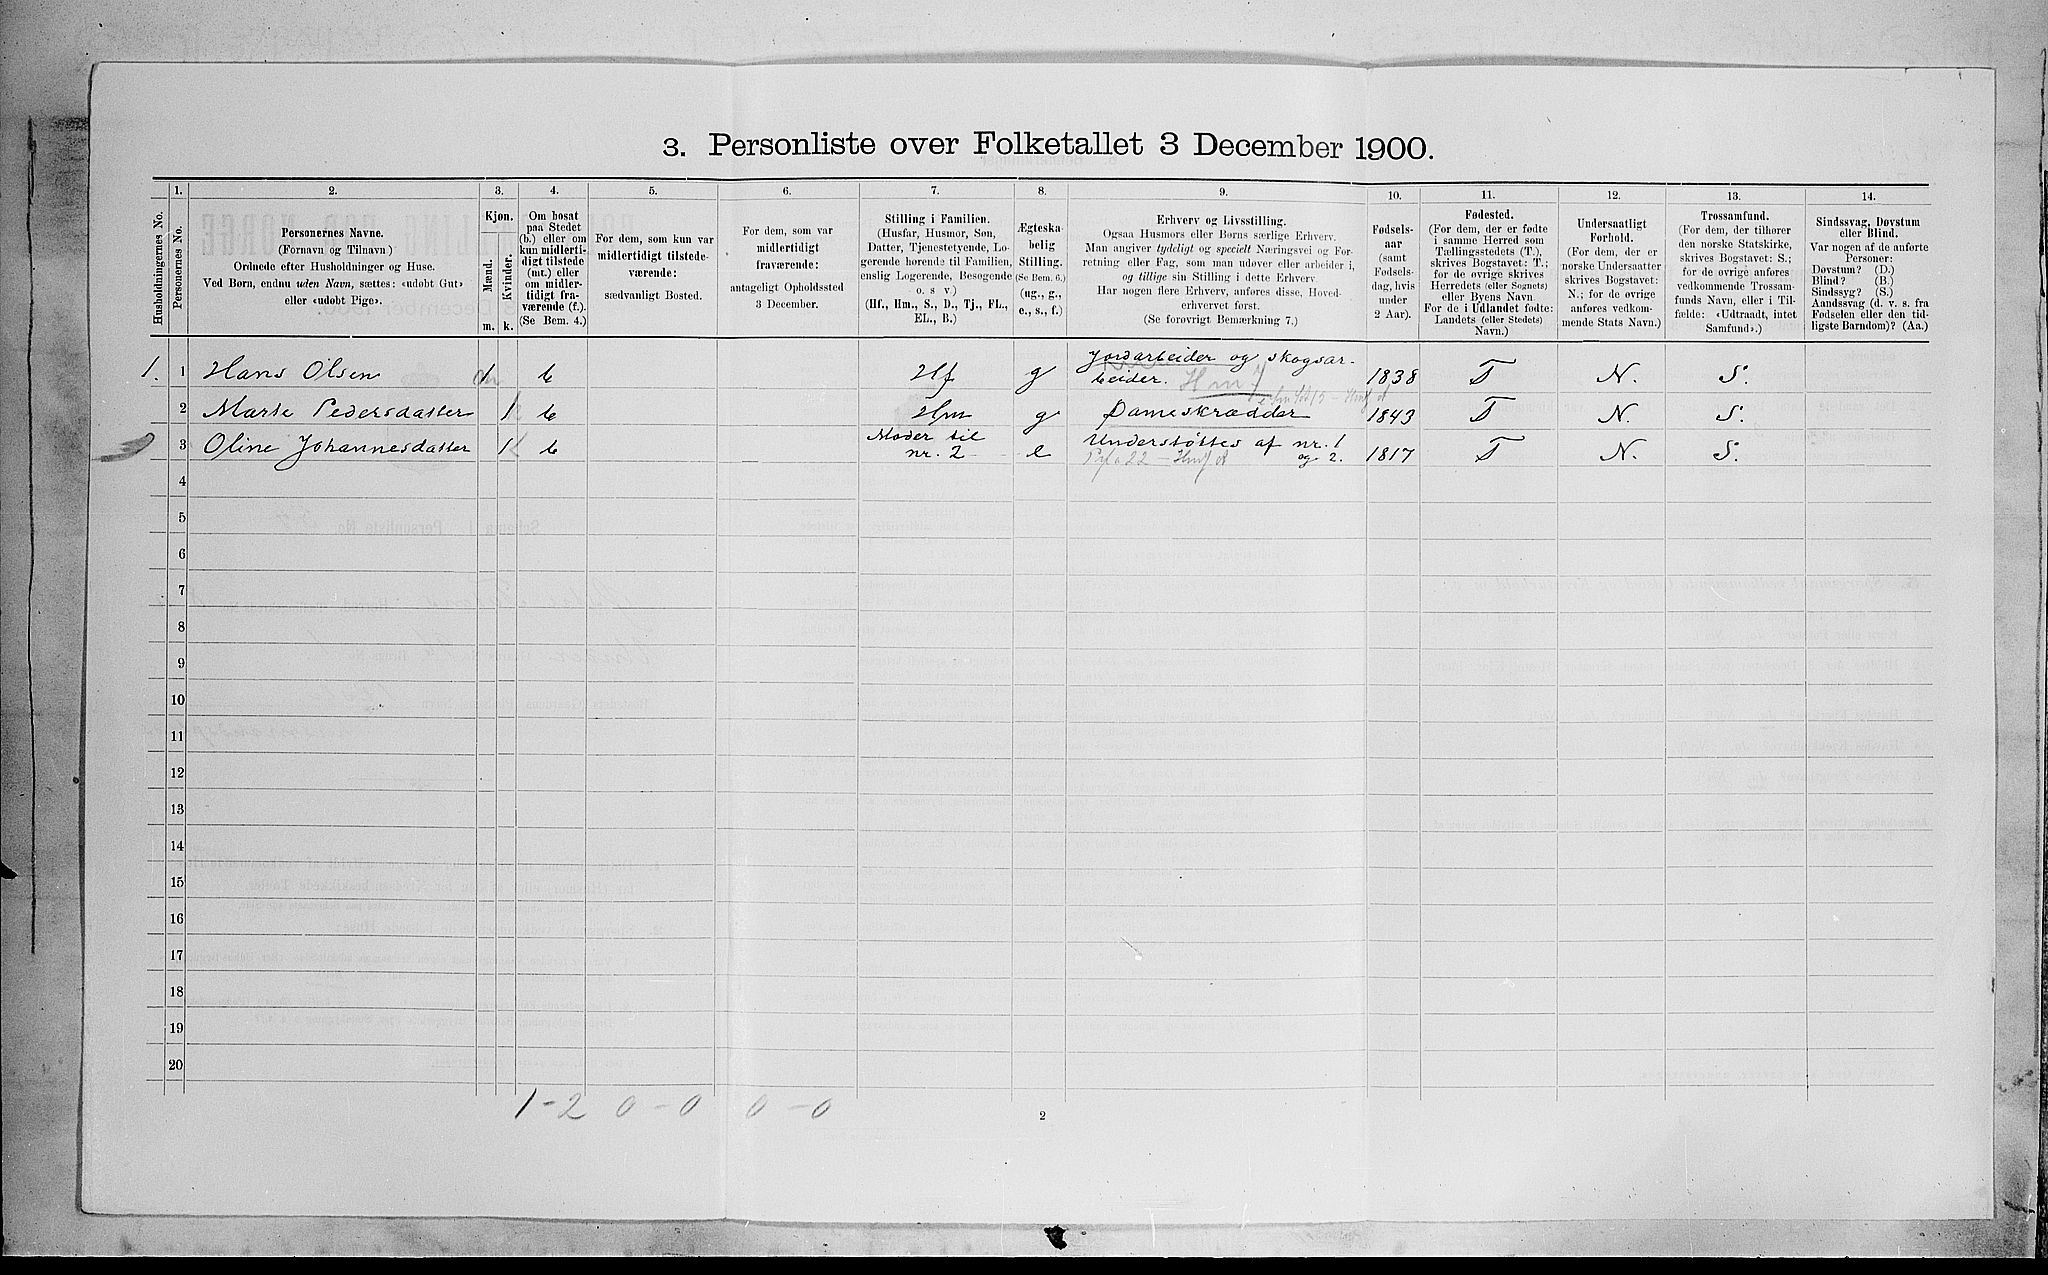 3. Personliste over Folketallet 3 December 1900.
Husholdningernes No.
1.
Personernes No.
2.
Personernes Navne.
(Fornavn og Tilnavn)
Ordnede efter Husholdninger og Huse.
Ved Børn, endnu uden Navn, sættes: «udøbt Gut»
eller «udøbt Pige».
3.
Kjøn.
Mænd.
Kvinder.
m.
k.
4.
Om bosat
paa Stedet
(b.) eller om
kun midlerti-
digt tilstede
(mt.) eller
om midler-
tidigt fra-
værende (f.).
(Se Bem. 4.)
5.
For dem, som kun var
midlertidigt tilstede-
værende:
sædvanligt Bosted.
6.
For dem, som var
midlertidigt
fraværende:
antageligt Opholdssted
3 December.
7.
Stilling i Familien.
(Husfar, Husmor, Søn,
Datter, Tjenestetyende, Lo-
gerende hørende til Familien,
enslig Logerende, Besøgende
o. s. v.)
(Hf., Hm., S., D., Tj., FL.,
EL., B.)
8.
Ægteska-
belig
Stilling.
(Se Bem. 6.)
(ug., g.,
e., s., f.)
9.
Erhverv og Livsstilling.
Ogsaa Husmors eller Børns særlige Erhverv.
Man angiver tydeligt og specielt Næringsvei og For-
retning eller Fag, som man udøver eller arbeider i,
og tillige sin Stilling i dette Erhverv.
Har nogen flere Erhverv, anføres disse, Hoved-
erhvervet først.
(Se forøvrigt Bemærkning 7.)
10.
Fødsels-
aar
(samt
Fødsels-
dag, hvis
under
2 Aar).
11.
Fødested.
(For dem, der er fødte
i samme Herred som
Tællingsstedets (T.),
skrives Bogstavet: T.;
for de øvrige skrives
Herredets (eller Sognets)
eller Byens Navn.
For de i Udlandet fødte:
Landets (eller Stedets)
Navn.)
12.
Undersaatligt
Forhold.
(For dem, der er
norske Undersaatter
skrives Bogstavet:
N.; for de øvrige
anføres vedkom-
mende Stats Navn.)
13.
Trossamfund.
(For dem, der tilhører
den norske Statskirke,
skrives Bogstavet: S.;
for de øvrige anføres
vedkommende Trossam-
funds Navn, eller i Til-
fælde: «Udtraadt, intet
Samfund».)
14.
Sindssvag, Døvstum
eller Blind.
Var nogen af de anførte
Personer:
Døvstum? (D.)
Blind? (B.)
Sindssyg? (S.)
Aandssvag (d. v. s. fra
Fødselen eller den tid-
ligste Barndom)? (Aa.)
1. 1 Hans Olsen 1 b Hf g Jordarbeider og skogsar-
beider. 1838 T N. S.
2 Marte Pedersdatter 1 b Hm g Dameskrædder 1843 T N. S.
3 Oline Johannesdatter 1 b Moder til
nr. 2 e Understøttes af nr. 1
og 2. 1817 T N. S.
4
5
6
7
8
9
10
11
12
13
14
15
16
17
18
19
20
1 - 2 0 - 0 0 - 0
2